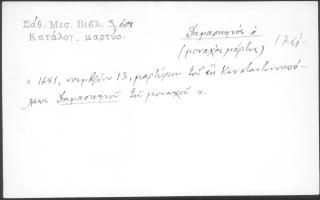 Σάθ. Μεσ. Βιβλ. 3,608
Κατάλογ. μαρτύρ.
Δαμασκηνός ὁ
(μοναχός μάρτυς)
" 1681, νοεμβρίου 13, μαρτύριον τοῦ ἐν Κωνσταντινουπό-
λει Δαμασκηνοῦ τοῦ μοναχοῦ ".